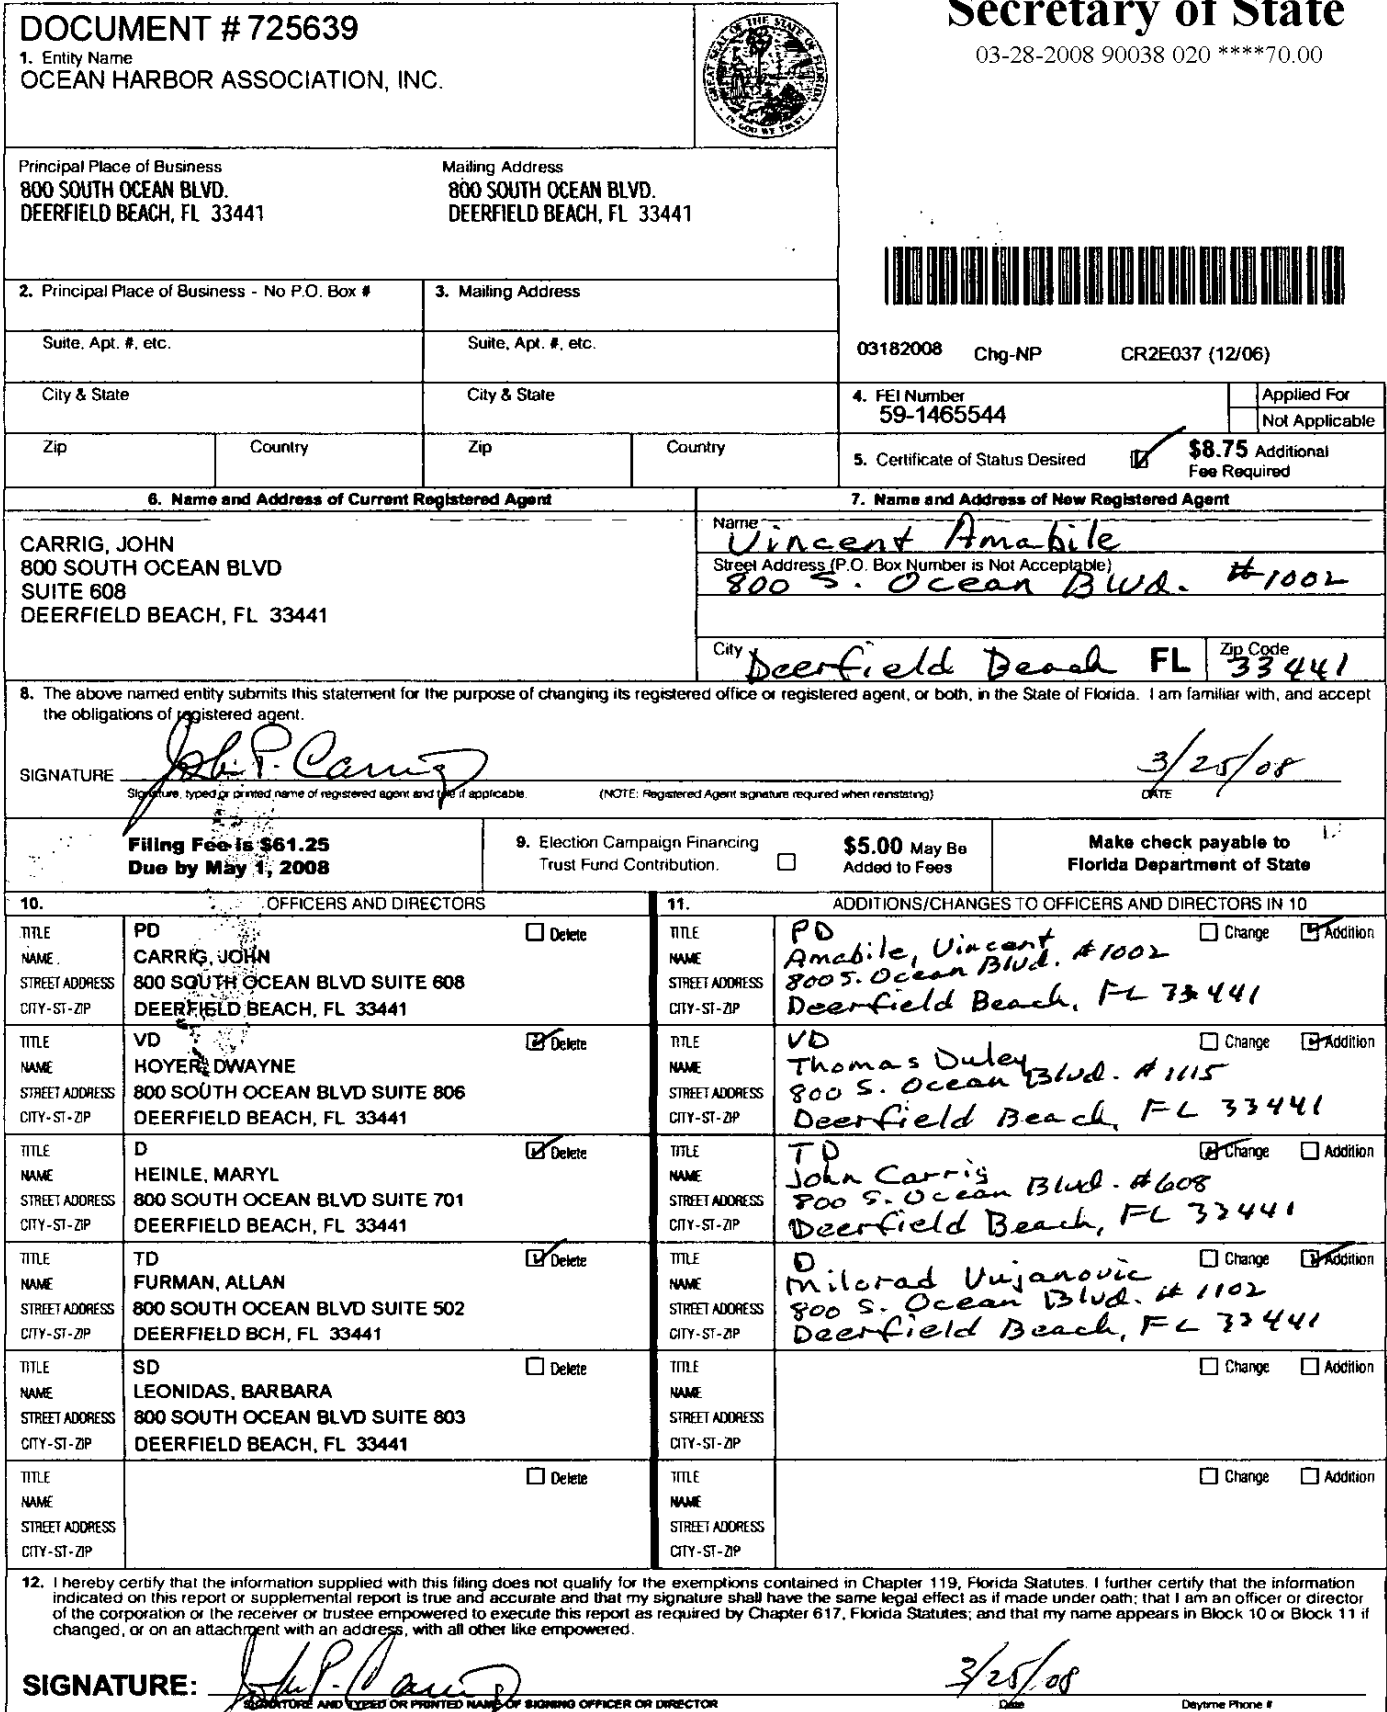 Secretary of State
03-28-2008 90038 020 ****70.00
DOCUMENT # 725639
1. Entity Name
OCEAN HARBOR ASSOCIATION, INC.
GREAT SEAL OF THE STATE OF FLORIDA
IN GOD WE TRUST
Principal Place of Business
800 SOUTH OCEAN BLVD.
DEERFIELD BEACH, FL 33441
Mailing Address
800 SOUTH OCEAN BLVD.
DEERFIELD BEACH, FL 33441
2. Principal Place of Business - No P.O. Box #
3. Mailing Address
Suite, Apt. #, etc.
Suite, Apt. #, etc.
City & State
City & State
Zip Country
Zip Country
03182008 Chg-NP CR2E037 (12/06)
4. FEI Number
59-1465544
Applied For
Not Applicable
5. Certificate of Status Desired
$8.75 Additional
Fee Required
6. Name and Address of Current Registered Agent
CARRIG, JOHN
800 SOUTH OCEAN BLVD
SUITE 608
DEERFIELD BEACH, FL 33441
7. Name and Address of New Registered Agent
Name
Vincent Amabile
Street Address (P.O. Box Number is Not Acceptable)
800 S. Ocean Blvd. #1002
City Deerfield Beach FL Zip Code 33441
8. The above named entity submits this statement for the purpose of changing its registered office or registered agent, or both, in the State of Florida. I am familiar with, and accept
the obligations of registered agent.
SIGNATURE John P. Carrig 3/25/08
Signature, typed or printed name of registered agent and title if applicable. (NOTE: Registered Agent signature required when reinstating) DATE
Filing Fee is $61.25
Due by May 1, 2008
9. Election Campaign Financing
Trust Fund Contribution.
$5.00 May Be
Added to Fees
Make check payable to
Florida Department of State
10. OFFICERS AND DIRECTORS
11. ADDITIONS/CHANGES TO OFFICERS AND DIRECTORS IN 10
TITLE PD Delete
NAME CARRIG, JOHN
STREET ADDRESS 800 SOUTH OCEAN BLVD SUITE 608
CITY-ST-ZIP DEERFIELD BEACH, FL 33441
TITLE PD Change Addition
NAME Amabile, Vincent
STREET ADDRESS 800 S. Ocean Blvd. #1002
CITY-ST-ZIP Deerfield Beach, FL 33441
TITLE VD Delete
NAME HOYER, DWAYNE
STREET ADDRESS 800 SOUTH OCEAN BLVD SUITE 806
CITY-ST-ZIP DEERFIELD BEACH, FL 33441
TITLE VD Change Addition
NAME Thomas Duley
STREET ADDRESS 800 S. Ocean Blvd. #1115
CITY-ST-ZIP Deerfield Beach, FL 33441
TITLE D Delete
NAME HEINLE, MARYL
STREET ADDRESS 800 SOUTH OCEAN BLVD SUITE 701
CITY-ST-ZIP DEERFIELD BEACH, FL 33441
TITLE TD Change Addition
NAME John Carrig
STREET ADDRESS 800 S. Ocean Blvd. #608
CITY-ST-ZIP Deerfield Beach, FL 33441
TITLE TD Delete
NAME FURMAN, ALLAN
STREET ADDRESS 800 SOUTH OCEAN BLVD SUITE 502
CITY-ST-ZIP DEERFIELD BCH, FL 33441
TITLE D Change Addition
NAME Milorad Vujanovic
STREET ADDRESS 800 S. Ocean Blvd. # 1102
CITY-ST-ZIP Deerfield Beach, FL 33441
TITLE SD Delete
NAME LEONIDAS, BARBARA
STREET ADDRESS 800 SOUTH OCEAN BLVD SUITE 803
CITY-ST-ZIP DEERFIELD BEACH, FL 33441
TITLE Change Addition
NAME
STREET ADDRESS
CITY-ST-ZIP
TITLE Delete
NAME
STREET ADDRESS
CITY-ST-ZIP
TITLE Change Addition
NAME
STREET ADDRESS
CITY-ST-ZIP
12. I hereby certify that the information supplied with this filing does not qualify for the exemptions contained in Chapter 119, Florida Statutes. I further certify that the information
indicated on this report or supplemental report is true and accurate and that my signature shall have the same legal effect as if made under oath; that I am an officer or director
of the corporation or the receiver or trustee empowered to execute this report as required by Chapter 617, Florida Statutes; and that my name appears in Block 10 or Block 11 if
changed, or on an attachment with an address, with all other like empowered.
SIGNATURE: John P. Carrig 3/25/08
SIGNATURE AND TYPED OR PRINTED NAME OF SIGNING OFFICER OR DIRECTOR Date Daytime Phone #